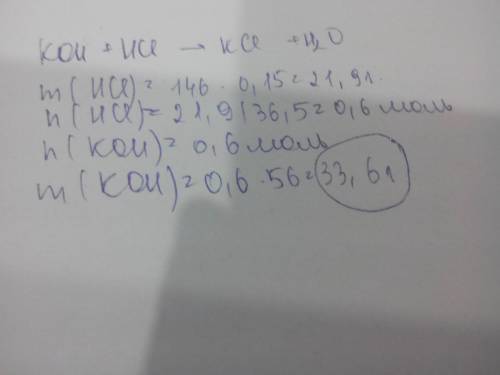 KOH + HCl → KCl + H₂O
m(HCl) = 146 · 0,15 = 21,9г.
n(HCl) = 21,9 / 36,5 = 0,6 моль
n(KOH) = 0,6 моль
m(KOH) = 0,6 · 56 = 33,6г